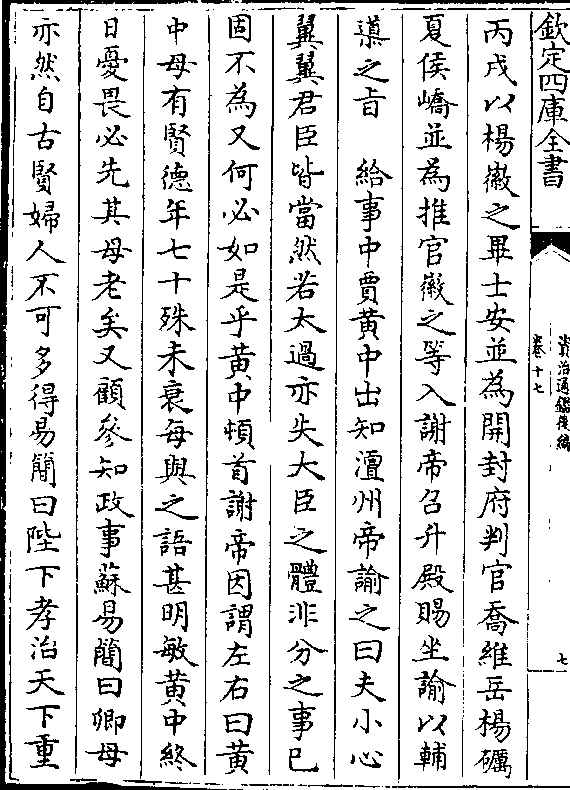 欽定四庫全書
資治通鑑後編
卷十七
七
丙戌以楊徽之畢士安並為開封府判官喬維岳楊礪
夏侯嶠並為推官徽之等入謝帝召升殿賜坐諭以輔
導之旨　給事中賈黃中出知澶州帝諭之曰夫小心
翼翼君臣皆當然若太過亦失大臣之體非分之事已
固不為又何必如是乎黃中頓首謝帝因謂左右曰黃
中母有賢德年七十殊未衰每與之語甚明敏黃中終
日憂畏必先其母老矣又顧參知政事蘇易簡曰卿母
亦然自古賢婦人不可多得易簡曰陛下孝治天下重